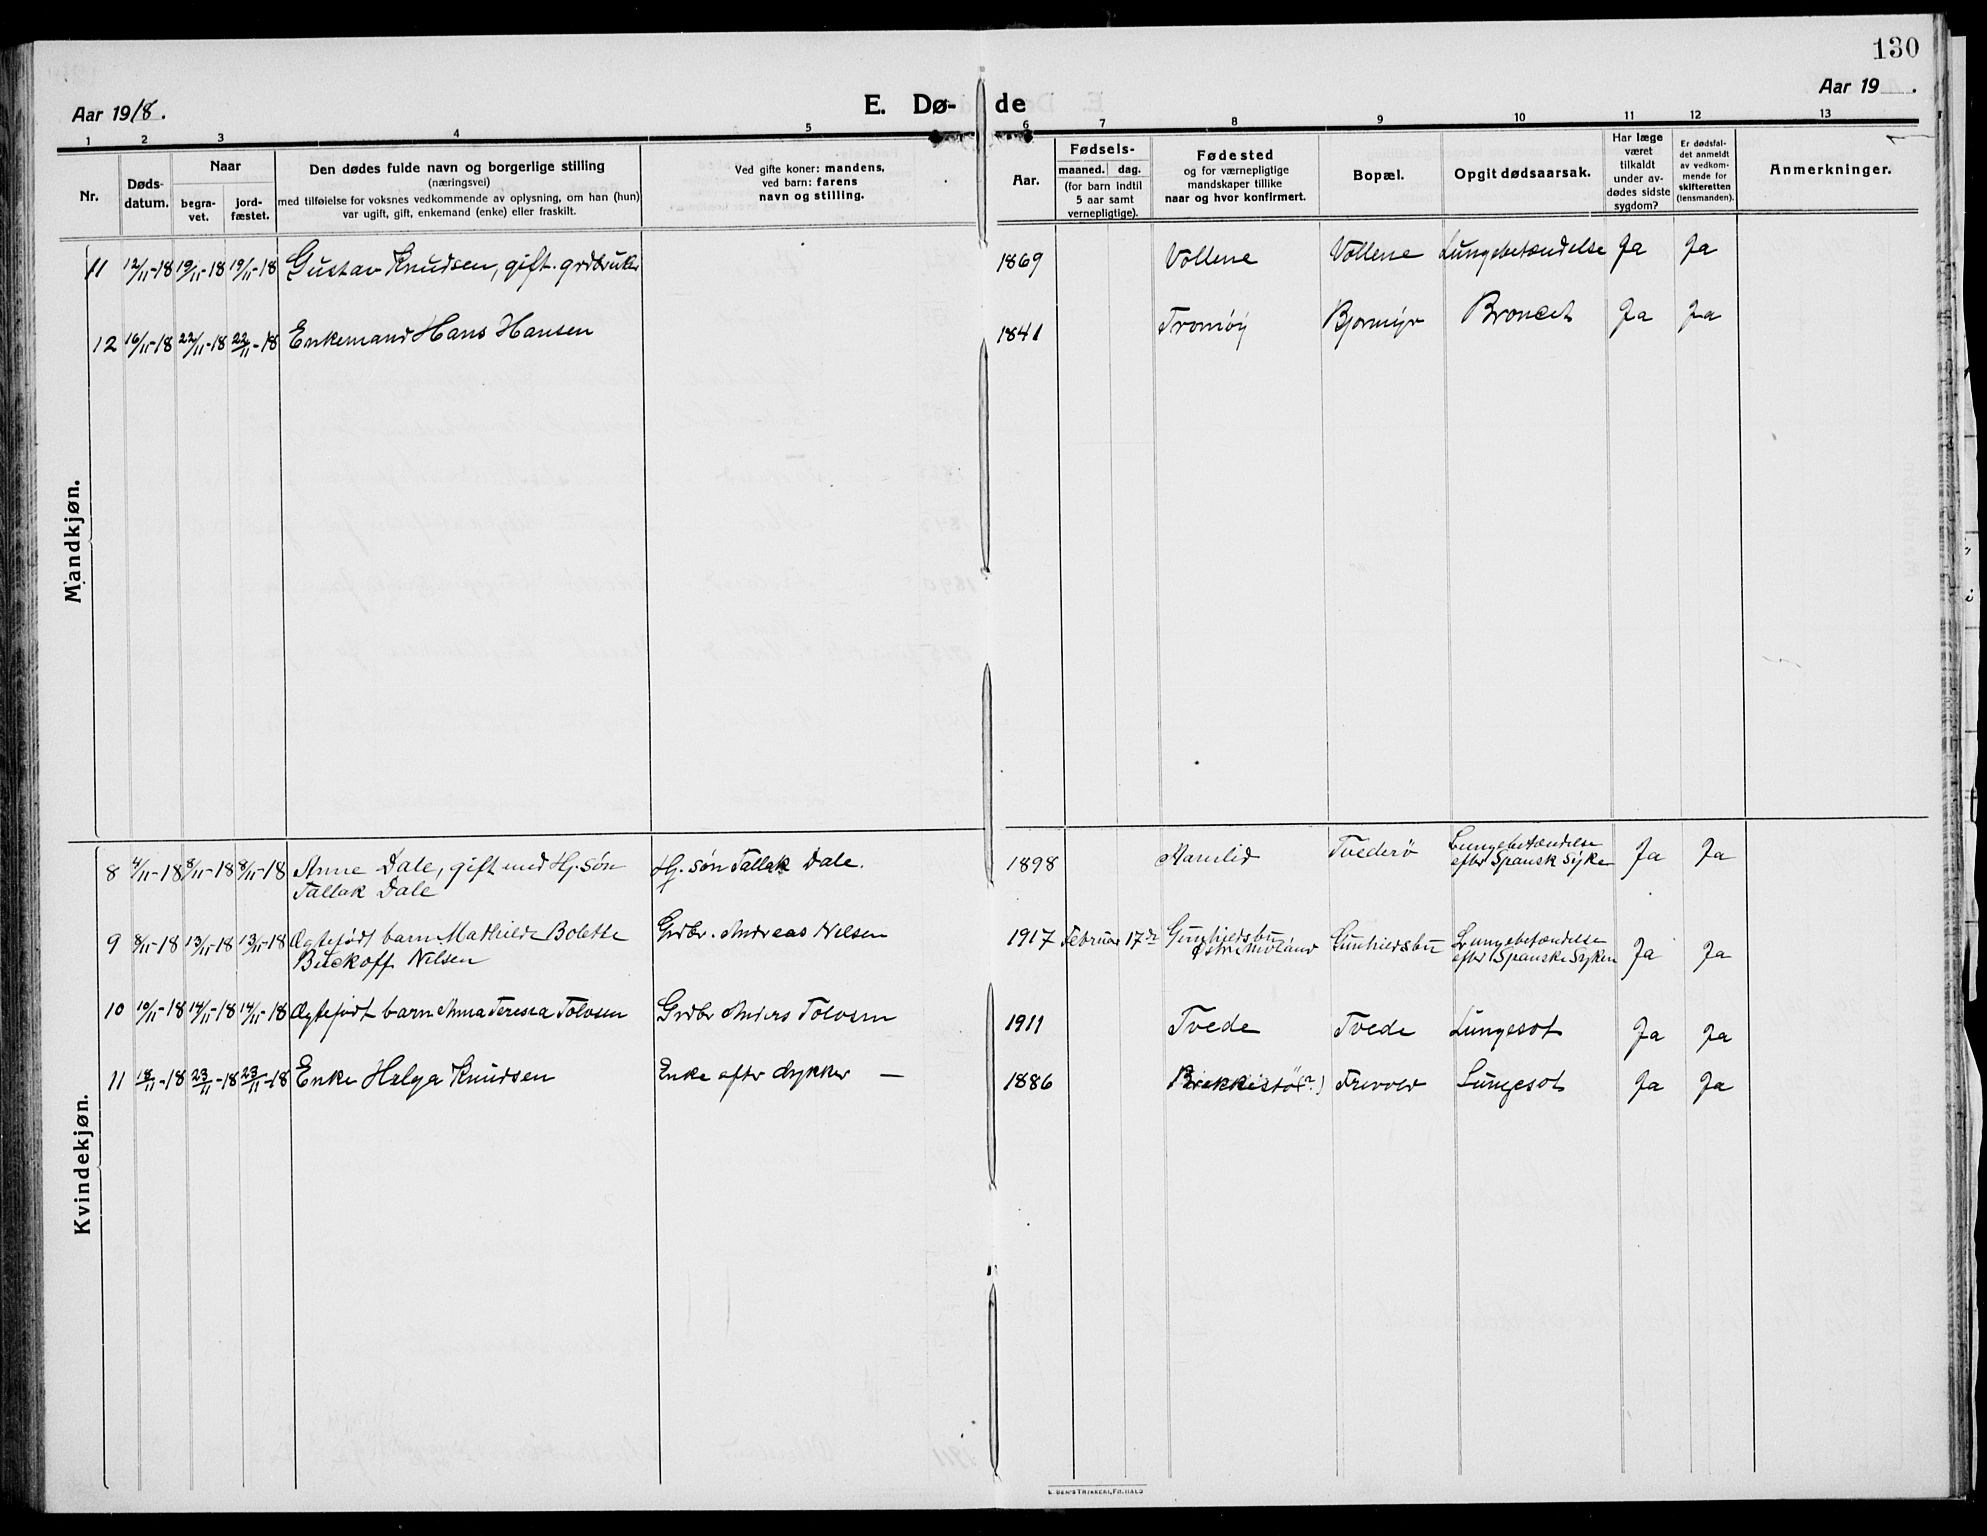 130
Aar 1918.
E. Dø- de
Aar 19 .
1 2 3 4 5 6 7 8 9 10 11 12 13
Nr.
Døds-
datum.
Naar
begra-
vet.
jord-
fæstet.
Den dødes fulde navn og borgerlige stilling
(næringsvei)
med tilføielse for voksnes vedkommende av oplysning, om han (hun)
var ugift, gift, enkemand (enke) eller fraskilt.
Ved gifte koner: mandens,
ved barn: farens
navn og stilling.
Aar.
Fødsels-
maaned. dag.
(for barn indtil
5 aar samt
vernepligtige).
Fødested
og for værnepligtige
mandskaper tillike
naar og hvor konfirmert.
Bopæl.
Opgit dødsaarsak.
Har læge
været
tilkaldt
under av-
dødes sidste
sygdom?
Er dødsfal-
det anmeldt
av vedkom-
mende for
skifteretten
(lensmanden).
Anmerkninger.
Mandkjøn.
11 12/11-18 19/11-18 19/11-18 Gustav Knudsen, gift. grdbruker 1869 Vollene Vollene Lungebetændelse Ja Ja
12 16/11-18 22/11-18 22/11-18 Enkemand Hans Hansen 1841 Tromøy Bjormyr Ja Ja
Kvindekjøn.
8 4/11-18 8/11-18 8/11-18 Anne Dale, gift med Hj. søn Hj. søn Tallak Dale. 1898 Ramlid Tvederø Lungebetændelse Ja Ja
Tallak Dale efter Spansk Syke
9 8/11-18 13/11-18 13/11-18 Ægtefødt barn Mathilde Bolette Grdbr. Andreas Nilsen 1917 Februar 17de Lungebetændelse Ja Ja
Nilsen Østre Moland efter Spanske Syken
10 10/11-18 14/11-18 14/11-18 Ægtefødt barn Anna Teresia Tolvsen Grdbr Anders Tolvsen 1911 Tvede Tvede Lungesot Ja Ja
11 18/11-18 23/11-18 23/11-18 Enke Helga Knudsen Enke efter dykker — 1886 Brekkestö(?) Lungesot Ja Ja